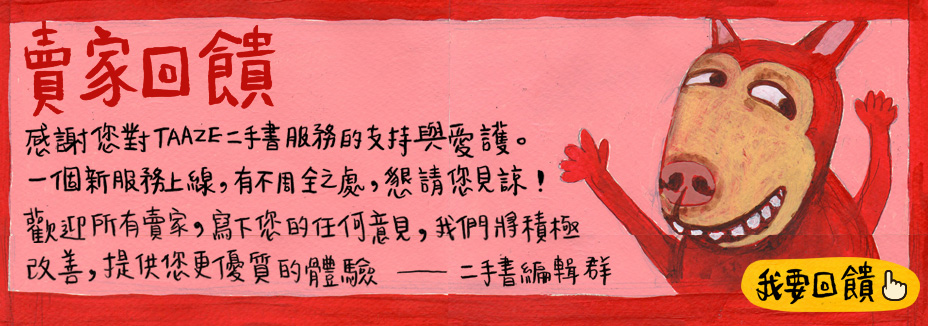 賣家回饋
感謝您對TAAZE二手書服務的支持與愛護。
一個新服務上線，有不周全之處，懇請您見諒！
歡迎所有賣家，寫下您的任何意見，我們將積極
改善，提供您更優質的體驗 —— 二手書編輯群
我要回饋